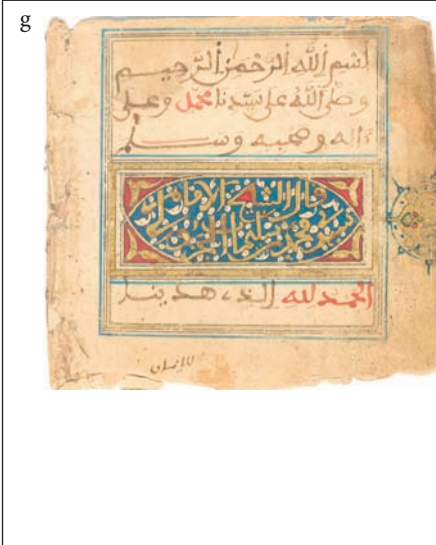 g
بسم الله الرحمن الرحيم
وصلى الله على سيدنا محمد وعلى
ءاله وصحبه وسلم
قال الشيخ الامام
محمد بن سليمان الجزولي
الحمد لله الذي هدينا
للايمان